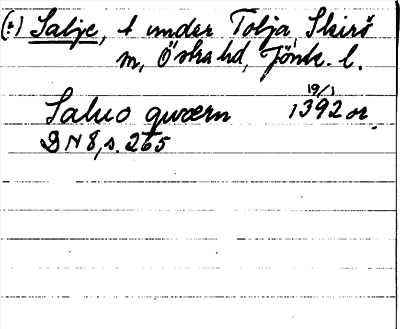 (+) Salje, t under Tolja, Skirö
sn, Östra hd, Jönk. l.
Saluo qwærn 19/1 1392 or.
DN 8, s. 265